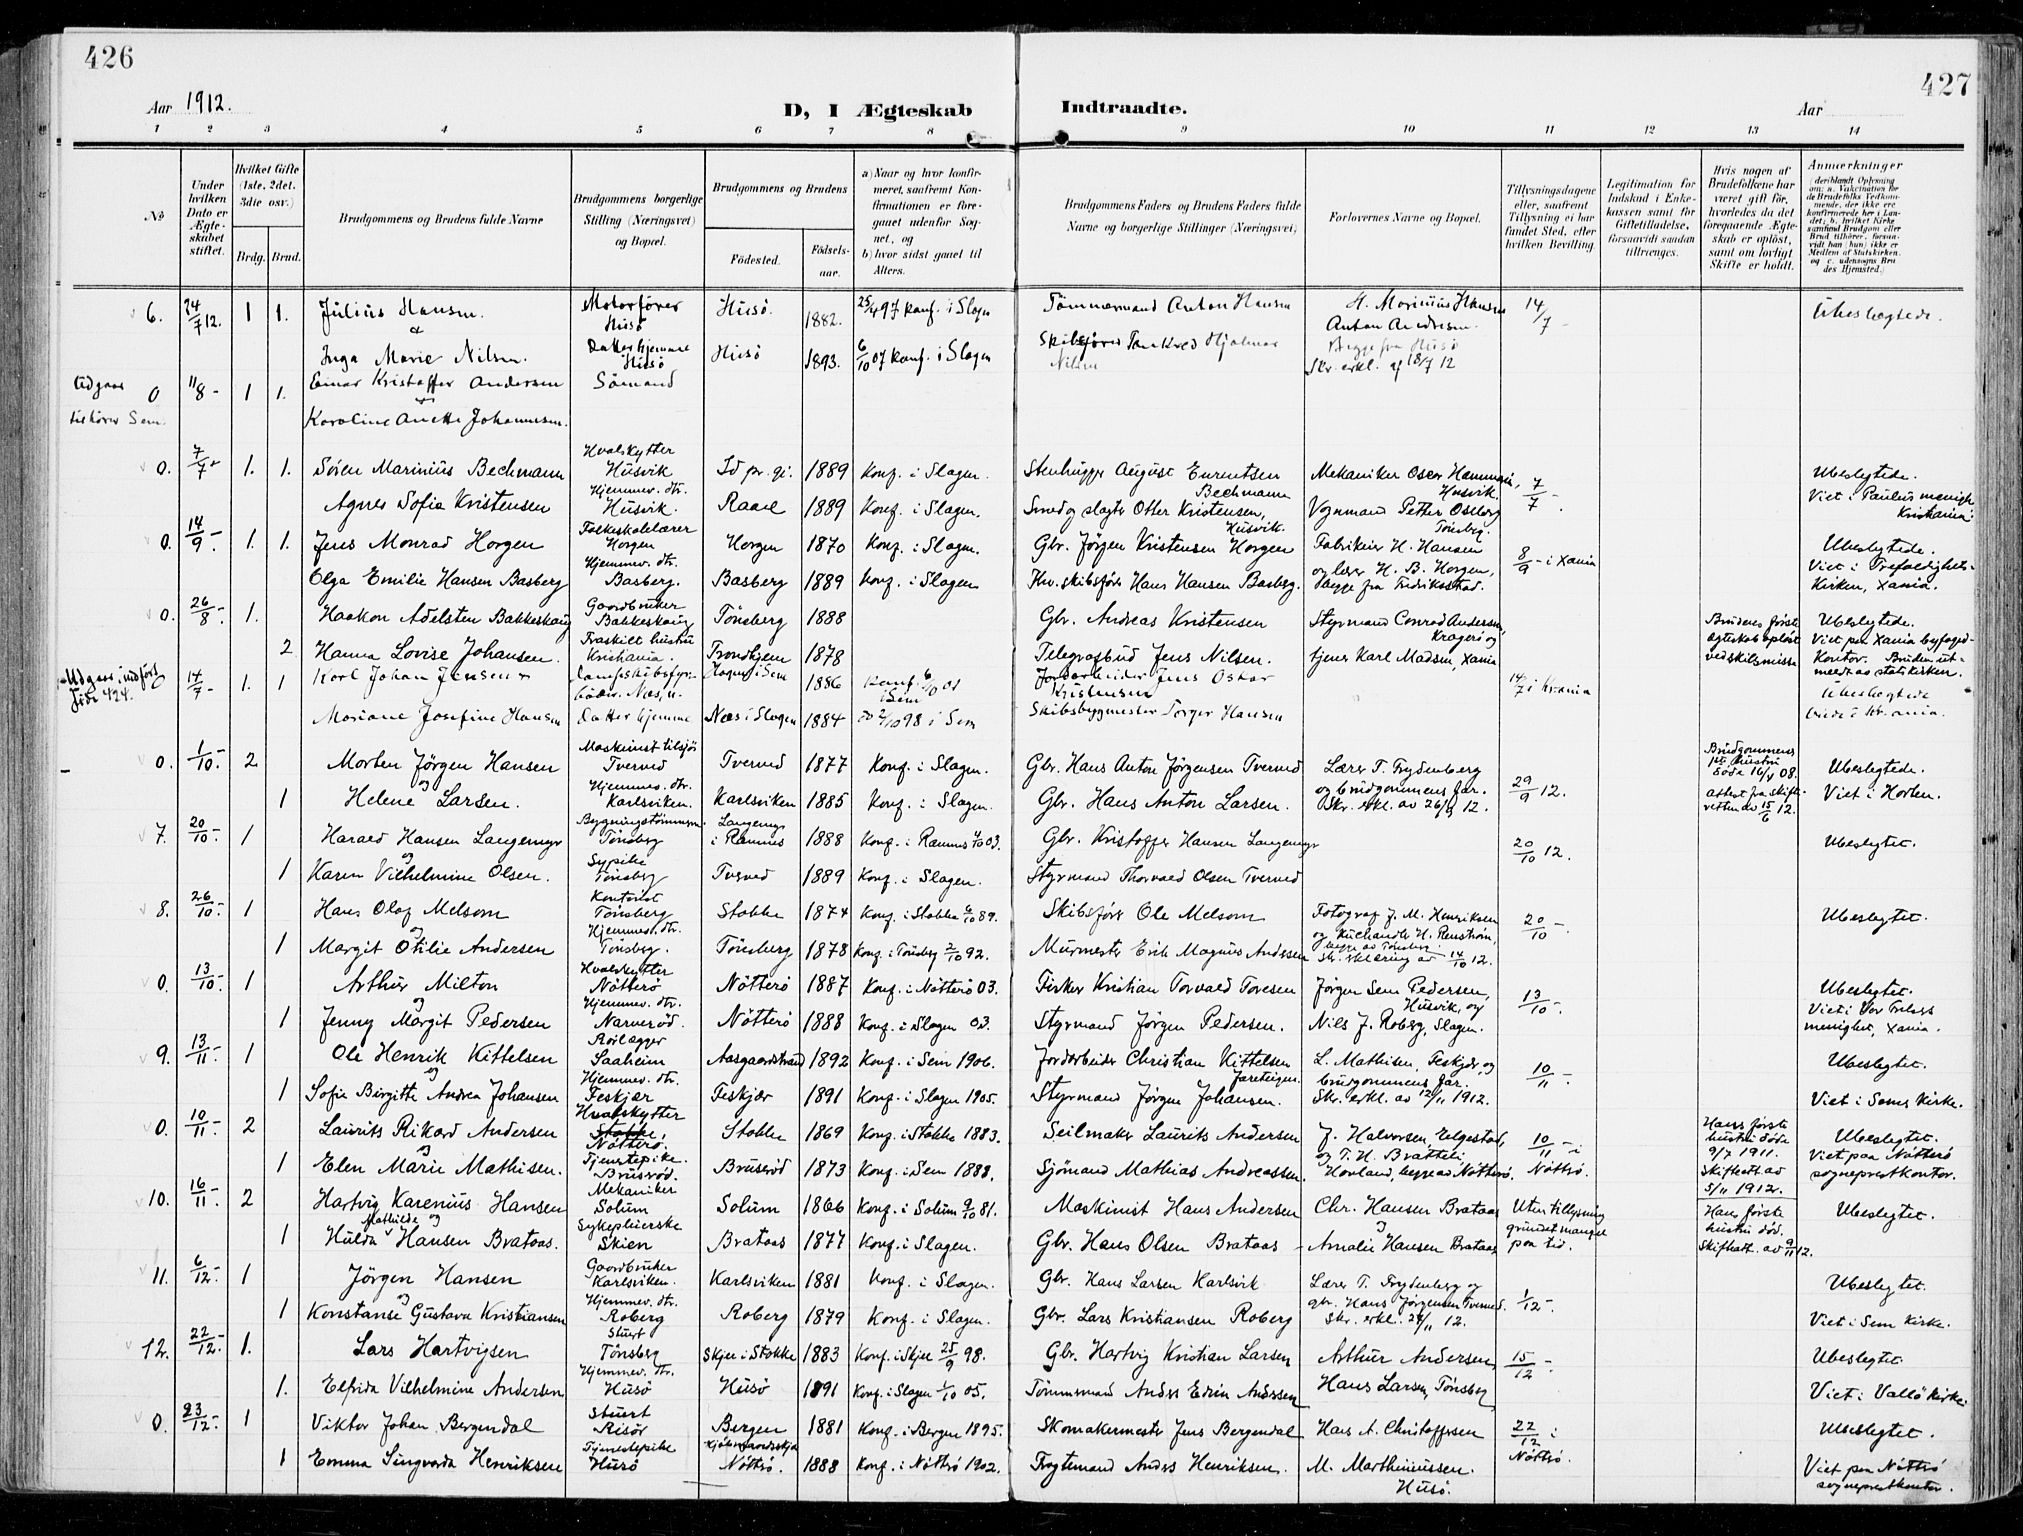 426
427
Aar 1912.
D, I Ægteskab Indtraadte.
Aar
1 2 3 4 5 6 7 8 9 10 11 12 13 14
No
Under hvilken Dato er Ægteskabet stiftet.
Hvilket Gifte (1ste, 2det. 3die osv.)
Brdg. Brud.
Brudgommens og Brudens fulde Navne
Brudgommens borgerlige Stilling (Næringsvei) og Bopæl.
Brudgommens og Brudens
Fødested.
Fødsels-aar.
a) Naar og hvor konfirmeret, saafremt Konfirmationen er foregaaet udenfor Sognet, og
b) hvor sidst gaaet til Alters.
Brudgommens Faders og Brudens Faders fulde Navne og borgerlige Stillinger (Næringsvei)
Forlovernes Navne og Bopæl.
Tillysningsdagene eller, saafremt Tillysning ei har fundet Sted, efter hvilken Bevilling.
Legitimation for Indskud i Enkekassen samt for Giftetilladelse, forsaavidt saadan tiltrænges.
Hvis nogen af Brudefolkene har været gift før, hvorledes da det foregaaende Ægteskab er opløst, samt om lovligt Skifte er holdt.
Anmærkninger
(deriblandt Oplysning om: a. Vakcination for de Brudefolks Vedkommende, der ikke ere konfirmerede her i Landet; b. hvilket Kirkesamfund Brudgom eller Brud tilhører, forsaavidt han (hun) ikke er Medlem af Statskirken, og c. udensogns Brudes Hjemsted.)
6. 14/7 12. 1 1. Julius Hansen. Motorfører Husø Husø. 1882. 25/4 97 konf. i Slagn Tømmermand Anton Hansen H. Marinius Hansen 14/7 Ubeslægtede.
& Anton Andresen.
Inga Marie Nilsen. Datter hjemme Husø Husø 1893. 6/10 07 konf. i Slagen Skibsfører Tankred Hjalmar Nilsen Begge fra Husø
Skr. erkl. af 18/7 12
Udgaar tilhører Sem. 0 11/8 - 1 1. Einar Kristoffer Andersen Sømand
Karoline Anette Johannesen.
0. 7/7 - 1. 1. Søren Marinius Bechmann Hvalskytter Husvik Id pr. gj. 1889 Konf. i Slagen. Stenhugger August Bechmann Mekaniker Oscar Husvik, 7/7 - Ubeslegtede.
Agnes Sofie Kristensen Hjemmev. dtr. Husvik. Raael 1889 Konf. i Slagen. Smed og slagter Otter Kristensen, Husvik. Vognmand Petter Osberg Tønsberg. Viet i Paulus menigh. Kristiania.
0. 14/9 - 1. 1. Jens Monrad Horgen Folkeskolelærer Horgen Horgen 1870 Konf. i Slagen. Gbr. Jørgen Kristensen Horgen Fabrikeier H. Hansen 8/9 - i Xania Ubeslegtede.
Olga Emilie Hansen Basberg Hjemmev. dtr. Basberg. Basberg 1889 Konf. i Slagen Fhv. skibsfører Hans Hansen Basberg. og lærer H. B. Horgen, begge fra Fredriksstad. Viet i Trefoldigheds-Kirken, Xania.
0. 26/8 - 1. Haakon Adelsten Bakkeskaug Gaardbruker Bakkeskaug Tønsberg 1888 Gbr. Andreas Kristensen Styrmand Conrad Andersen, Kragerø og Brudens første ægteskab opløst ved skilsmisse Ubeslegtede.
2 Hanna Lovise Johansen. Fraskilt hustru Kristiania. Trondhjem 1878 Telegrafbud Jens Nilsen. tjener Karl Madsen, Xania Viet paa Xania byfoged-Kontor. Bruden ut-meldt av statskirken.
Udgaar indført Side 424. 14/7 - 1. 1 Karl Johan Jensen Dampskibsfyrbøder, Næs, Haugen i Sem 1886 Konf. 6/10 01 i Sem Jordarbeider Jens Oskar Kristensen 14/7 i Kr.ania Ubeslegtede
Mariane Josefine Hansen Datter hjemme Næs i Slagen 1884 do 2/10 98 i Sem Skibsbygmester Torger Hansen viede i Kr.ania.
0. 1/10 - 2 Morten Jørgen Hansen Maskinist tilsjøs Tverved Tverved 1877 Konf. i Slagen. Gbr. Hans Anton Jørgensen Tverved Lærer T. Frydenberg 29/9 12. Brudgommens 1ste hustru døde 16/4 08. Ubeslegtede.
og
1 Helene Larsen. Hjemmev. dtr. Karlsviken. Karlsviken 1885 Konf. i Slagen. Gbr. Hans Anton Larsen. og brudgommens far. Skr. erkl. av 26/9 12. Attest fra skifteretten av 15/6 12. Viet i Horten.
7. 20/10 - 1 Harald Hansen Langemyr Bygningstømmerm. Tønsberg Langemyr i Ramnes 1888 Konf. i Ramnes 4/10 03. Gbr. Kristoffer Hansen Langemyr 20/10 12. Ubeslegtet.
og
1 Karen Vilhelmine Olsen. Sypike Tønsberg Tverved 1889 Konf. i Slagen. Styrmand Thorvald Olsen Tverved
8. 26/10 - 1 Hans Olaf Melsom Kontorist Tønsberg Stokke 1874 Konf. i Stokke 6/10 89. Skibsfører Ole Melsom Fotograf J. M. Henriksen 20/10 - Ubeslegtet.
og
1 Margit Otilie Andersen Hjemmev. dtr. Tønsberg. Tønsberg 1878 Konf. i Tønsberg 2/10 92. Murmester Erik Magnus Andersen og H. Renstrøm, begge av Tønsberg. Skr. erklæring av 14/10 12.
0. 13/10 - 1 Arthur Milton Hvalskytter Nøtterø Nøtterø 1887 Konf. i Nøtterø 03. Fisker Kristian Torvald Toresen Jørgen Sem Pedersen, Husvik, og 13/10 - Ubeslegtet.
og
1 Jenny Margit Pedersen Hjemmev. dtr. Narverød. Nøtterø 1888 Konf. i Slagen 03. Styrmand Jørgen Pedersen. Nils J. Roberg, Slagen. Viet i Vor Frelsers menighet, Xania.
9. 13/11 - 1 Ole Henrik Kittelsen Rørlægger Saaheim Aasgaardstrand 1892 Konf. i Sem 1906. Jordarbeider Christian Kittelsen Jareteigen. L. Mathisen, Feskjær, og 10/11 - Ubeslegtet.
og
1 Sofie Birgitte Andrea Johansen Hjemmev. dtr. Feskjær Feskjær 1891 Konf. i Slagen 1905. Styrmand Jørgen Johansen. brudgommens far. Skr. erkl. av 12/11 1912. Viet i Sems Kirke.
0. 10/11 - 2 Laurits Rikard Andersen Hvalskytter Stokke, Nøtterø. Stokke 1869 Konf. i Stokke 1883. Seilmaker Laurits Andersen J. Halvorsen, Elgestad, 10/11 - i Nøtterø. Hans første hustru døde 9/7 1911. Ubeslegtet.
og
1 Elen Marie Mathisen. Tjenestepike. Brusrød. Brusrød 1873 Konf. i Sem 1888. Sjømand Mathias Andreassen og T. H. Brattli Hovland, begge av Nøtterø. Skifteatt. av 5/11 1912. Viet paa Nøtterø sogneprestkontor.
10. 16/11 - 2 Hartvig Karenius Hansen Mekaniker Solum Solum 1866 Konf. i Solum 9/10 81. Maskinist Hans Andersen Chr. Hansen Brataas Uten tillysning Hans første hustru død. Ubeslegtet.
Mathilde og
1 Hulda Hansen Brataas. Sykepleierske Skien Brataas 1877 Konf. i Slagen. Gbr. Hans Olsen Brataas Amalie Hansen Brataas grundet mangel paa tid. Skifteatt. av 9/11 12.
11. 6/12 - 1 Jørgen Hansen Gaardbruker Karlsviken. Karlsviken 1881 Konf. i Slagen. Gbr. Hans Larsen Karlsvik Lærer T. Frydenberg og 1/12 - Ubeslegtet.
og
1 Konstanse Gustava Kristiansen Hjemmev. dtr. Roberg Roberg 1879 Konf. i Slagen. Gbr. Lars Kristiansen Roberg gbr. Hans Jørgensen Tverved. Skr. erkl. 24/11 12. Viet i Sem Kirke.
12. 22/12 - 1. Lars Hartvigsen Stuert Tønsberg Skjee i Stokke 1883 Konf. i Skjee 25/9 98. Gbr. Hartvig Kristian Larsen Arthur Andersen 15/12 - Ubeslegtet.
1. Elfrida Vilhelmine Andersen Hjemmev. dtr. Husø Husø 1891 Konf. i Slagen 1/10 05. Tømmermand Anders Edvin Andersen Hans Larsen, Tønsberg Viet i Vallø kirke.
0. 23/12 - 1 Viktor Johan Bergendal Stuert Risør Bergen 1881 Konf. i Bergen 1895. Skomakermester Jens Bergendal Hans A. Christoffersen 22/12 i Nøtterø. Ubeslegtet.
1 Emma Singvarda Henriksen Tjenestepike Husø Nøtterø. 1888 Konf. i Nøtterø 1902. Fragtemand Anders Henriksen. M. Marthiniussen. Husø. Viet paa Nøtterø sogneprestkontor.